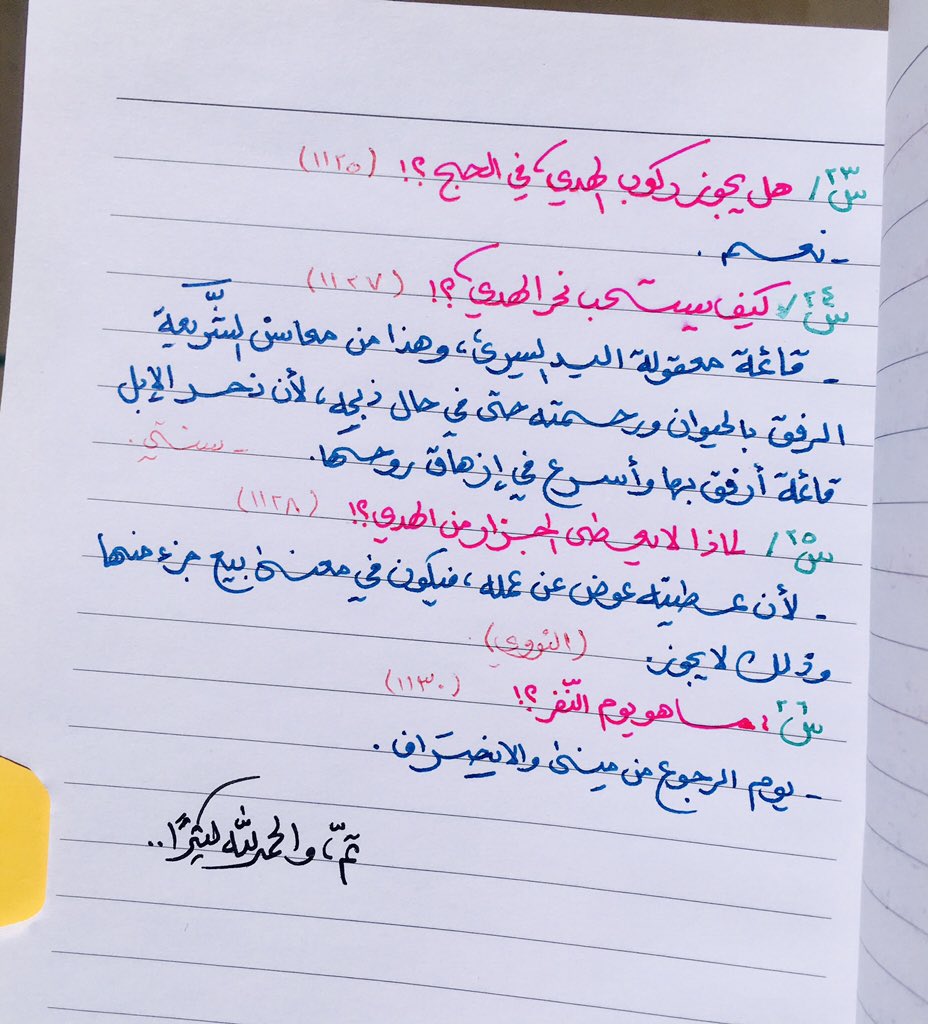 س٢٣/ هل يجوز ركوب الهدي في الحج؟! (١١٢٥)
- نعم.
س٢٤/ كيف يستحب نحر الهدي؟! (١١٢٧)
- قائمة معقولة اليد اليسرىٰ، وهذا من محاسن الشَّريعة
الرفق بالحيوان ورحمته حتى في حال ذبحِه، لأن نحر الإبل
قائمة أرفق بها وأسرع في إزهاق روحها. - سنتي.
س٢٥/ لماذا لا يعطى الجزار من الهدي؟! (١١٢٨)
- لأن عطيته عوض عن عمله، فيكون في معنىٰ بيع جزء منها
وذلك لا يجوز. (النووي).
س٢٦: ما هو يوم النّفر؟! (١١٣٠)
- يوم الرجوع من مِنىٰ والانصِرَاف.
تمّ، والحمدلله كثيرًا..